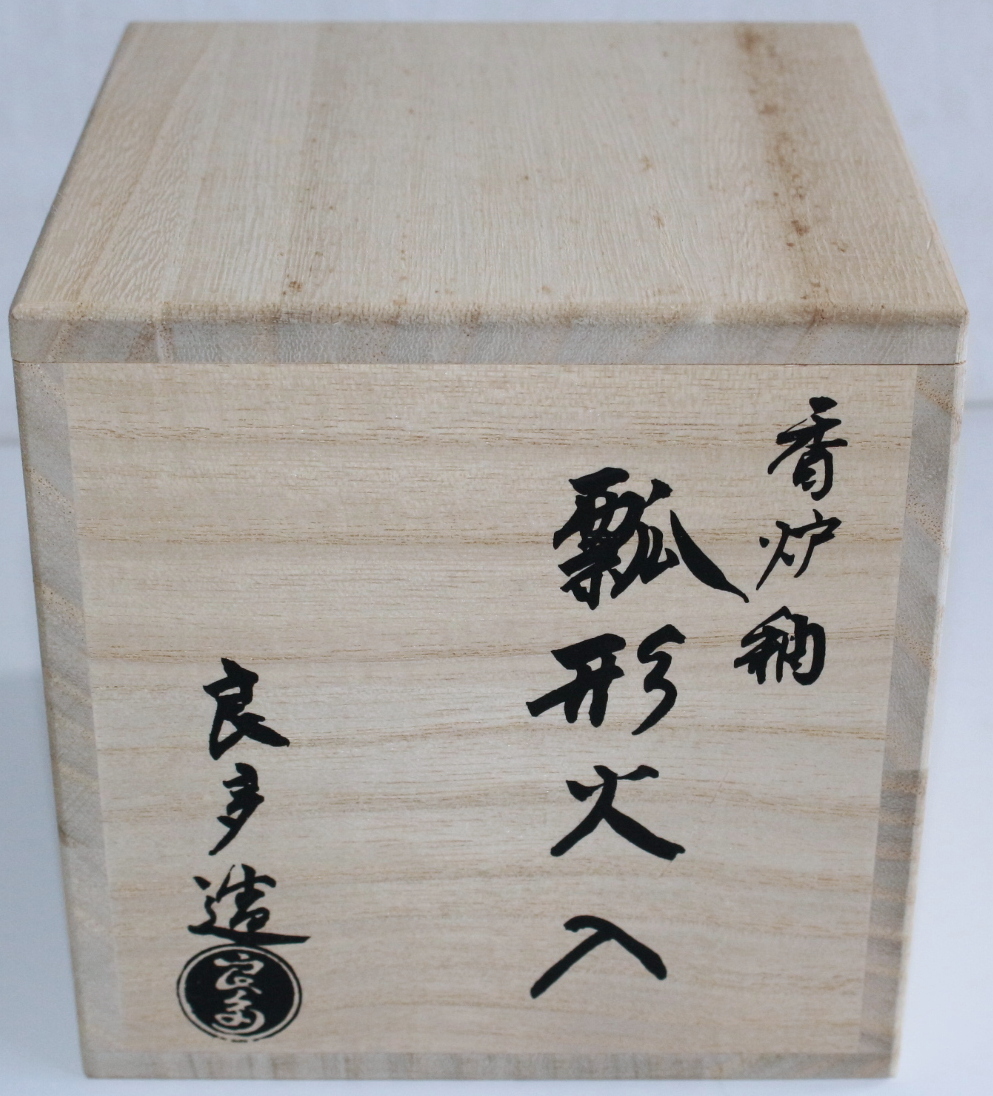 香炉釉
瓢形火入
良多造
良多